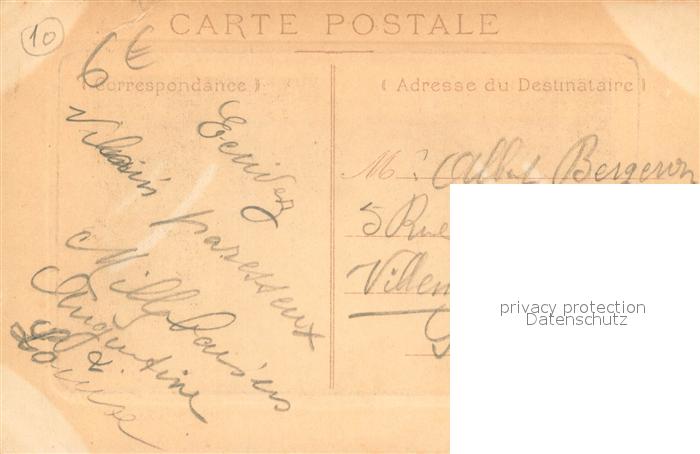 10
CARTE POSTALE
6€
( Correspondance )
( Adresse du Destinataire )
Ecrivez
Vilains paresseux
Mille baisers
Augustine
&
Louise
Mr Albert Bergeron
5 Rue
Villem
privacy protection
Datenschutz